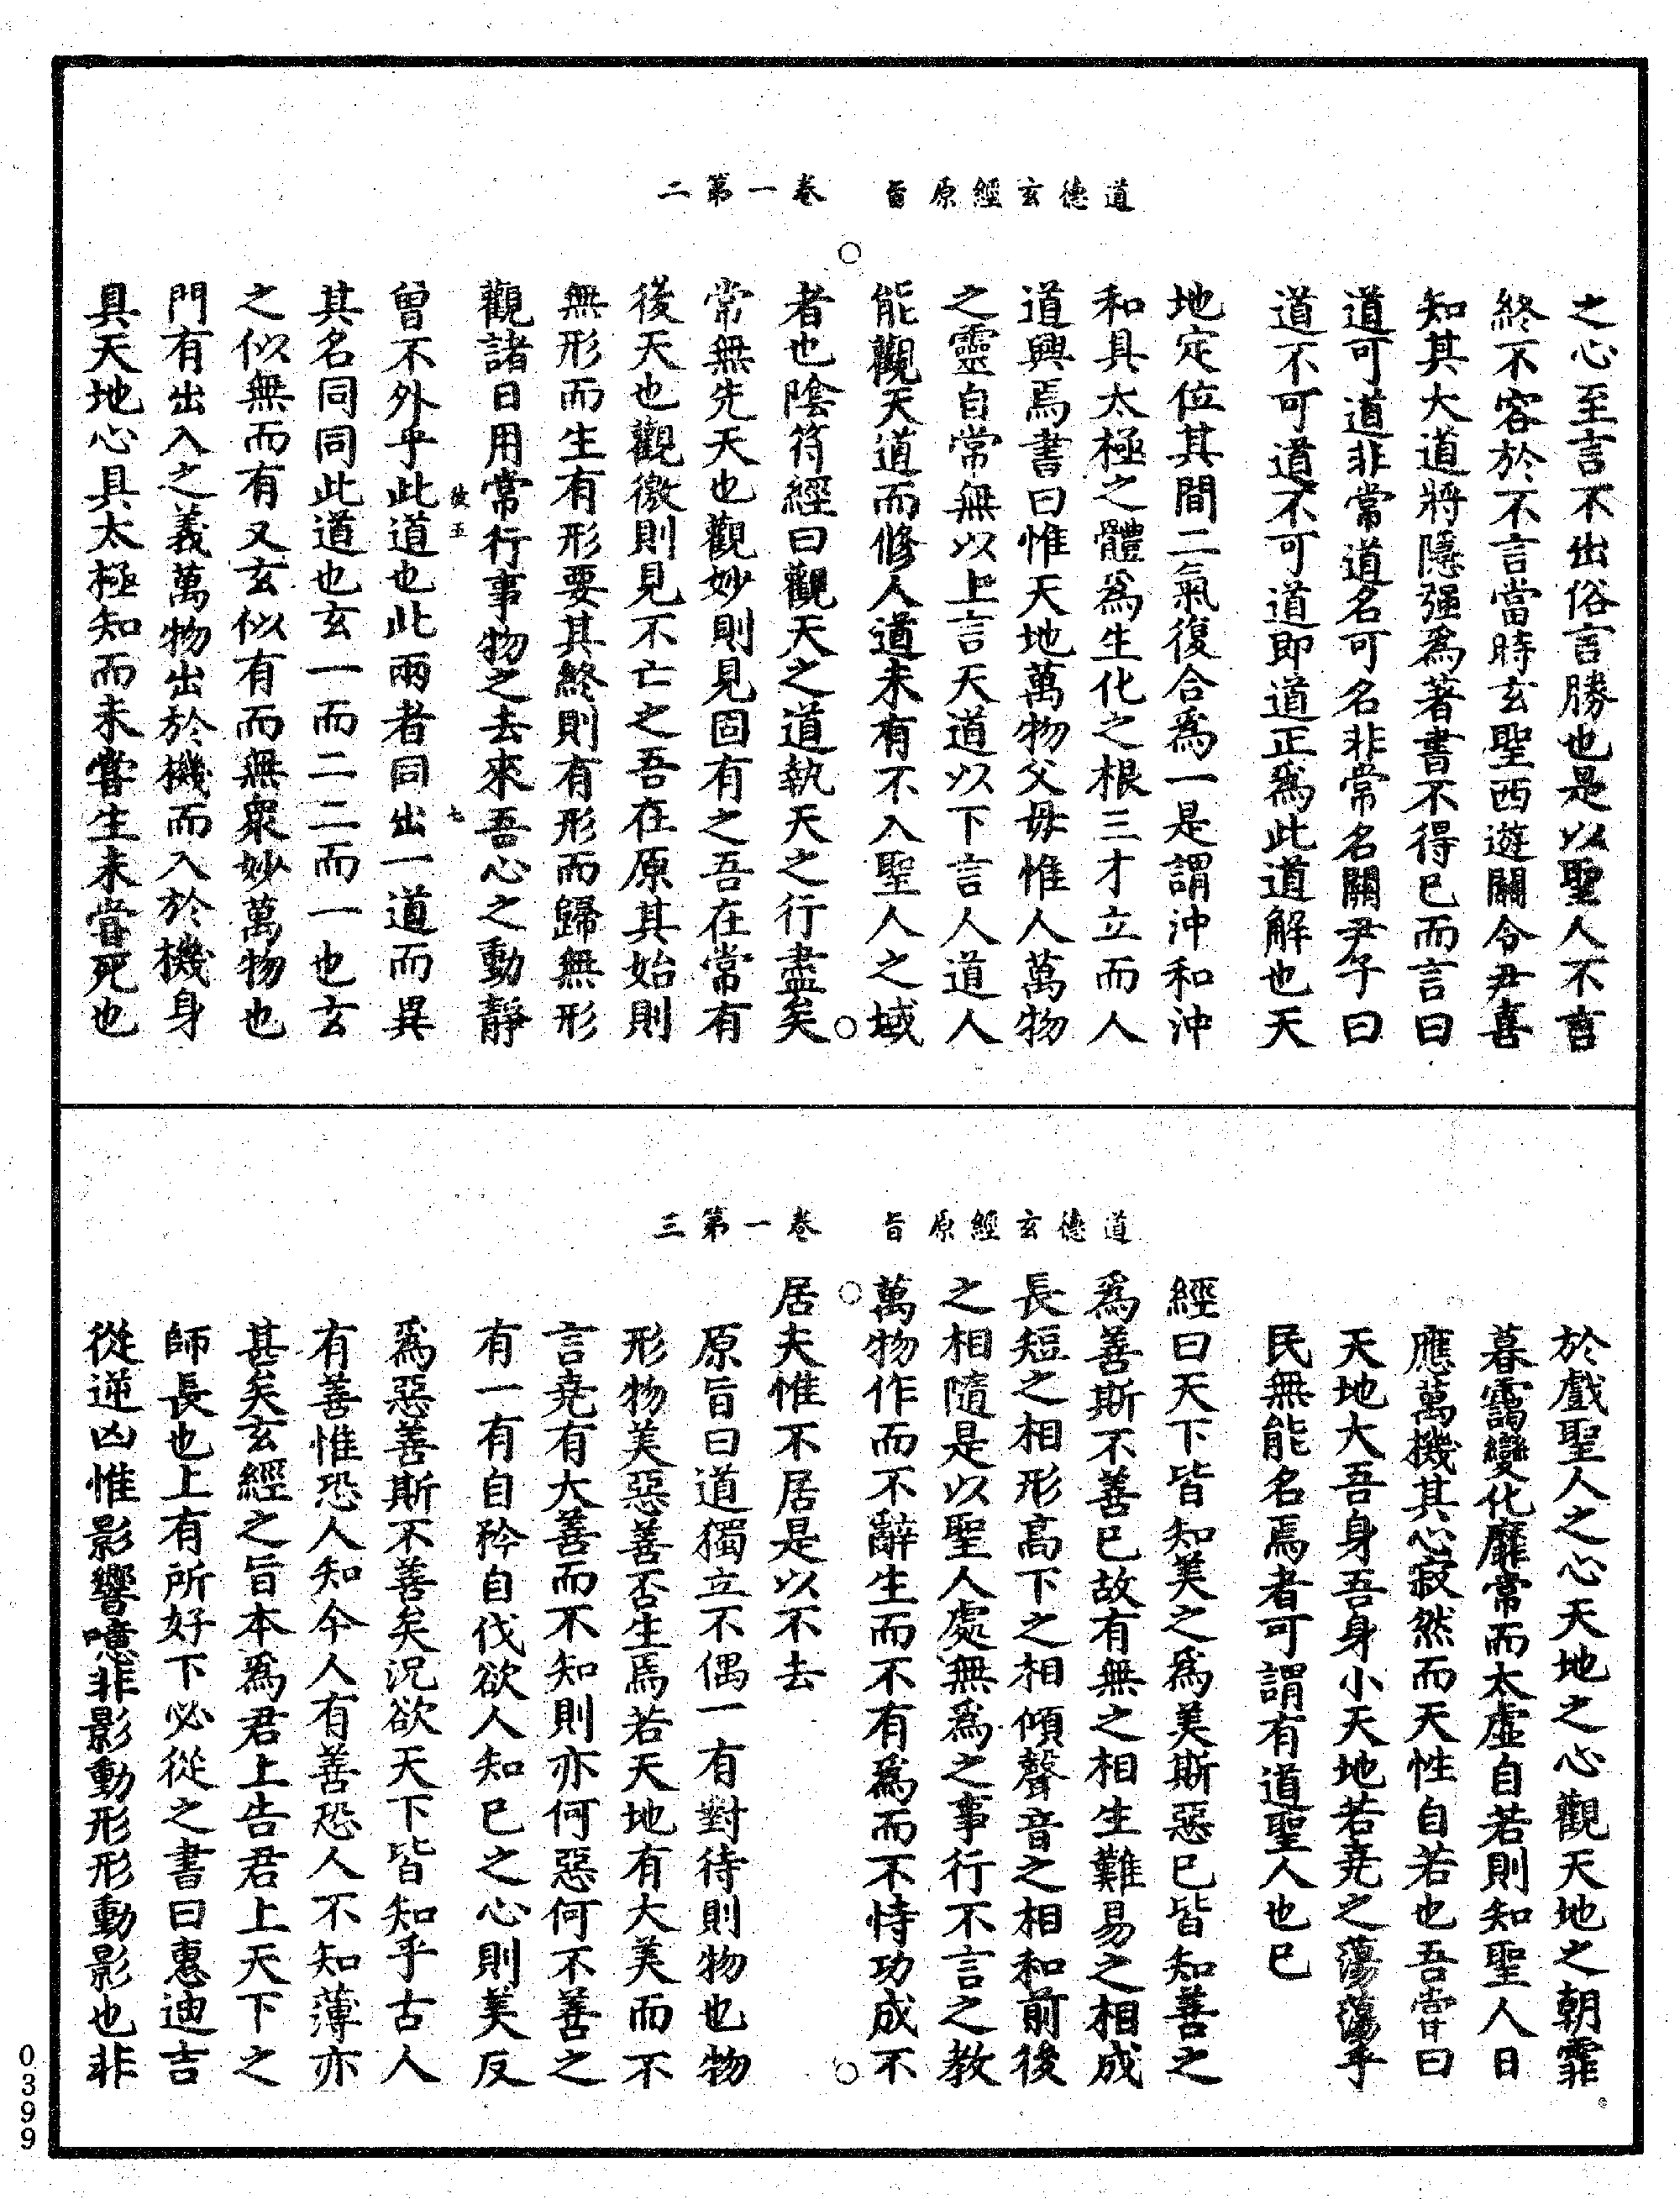 道德玄經原旨　卷一第二
之心至言不出俗言勝也是以聖人不言
終不容於不言當時玄聖西遊關令尹喜
知其大道將隱强爲著書不得已而言曰
道可道非常道名可名非常名關尹子曰
道不可道不可道即道正爲此道解也天
地定位其間二氣復合爲一是謂沖和沖
和具太極之體爲生化之根三才立而人
道興焉書曰惟天地萬物父母惟人萬物
之靈自常無以上言天道以下言人道人
能觀天道而修人道未有不入聖人之域
者也陰符經曰觀天之道執天之行盡矣
常無先天也觀妙則見固有之吾在常有
後天也觀徼則見不亡之吾在原其始則
無形而生有形要其終則有形而歸無形
觀諸日用常行事物之去來吾心之動靜
彼五　七
曾不外乎此道也此兩者同出一道而異
其名同同此道也玄一而二二而一也玄
之似無而有又玄似有而無衆妙萬物也
門有出入之義萬物出於機而入於機身
具天地心具太極知而未嘗生未嘗死也
道德玄經原旨　卷一第三
於戲聖人之心天地之心觀天地之朝霏
暮靄變化靡常而太虛自若則知聖人日
應萬機其心寂然而天性自若也吾嘗曰
天地大吾身吾身小天地若堯之蕩蕩乎
民無能名焉者可謂有道聖人也已
經曰天下皆知美之爲美斯惡已皆知善之
爲善斯不善已故有無之相生難易之相成
長短之相形高下之相傾聲音之相和前後
之相隨是以聖人處無爲之事行不言之教
萬物作而不辭生而不有爲而不恃功成不
居夫惟不居是以不去
原旨曰道獨立不偶一有對待則物也物
形物美惡善否生焉若天地有大美而不
言堯有大善而不知則亦何惡何不善之
有一有自矜自伐欲人知已之心則美反
爲惡善斯不善矣況欲天下皆知乎古人
有善惟恐人知今人有善恐人不知薄亦
甚矣玄經之旨本爲君上告君上天下之
師長也上有所好下必從之書曰惠迪吉
從逆凶惟影響噫非影動形形動影也非
0399